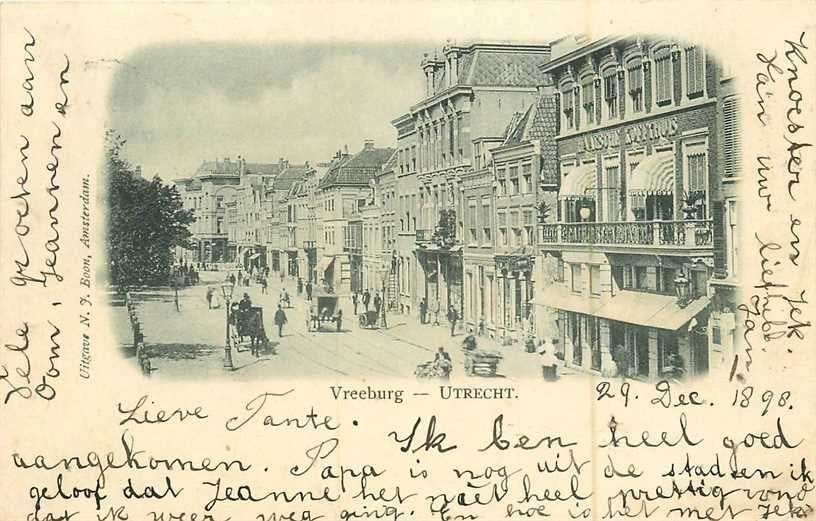 Vreeburg — UTRECHT.
Uitgave N. J. Boon, Amsterdam.
29. Dec. 1898.
Lieve Tante.
Ik ben heel goed
aangekomen. Papa is nog uit de stad en ik
geloof dat Jeanne het niet heel prettig vond
dat ik weer weg ging. En hoe is het met Jek
Knoester en Jek.
uw liefheb.
Jan
Vele groeten aan
Oom, Jeannen en